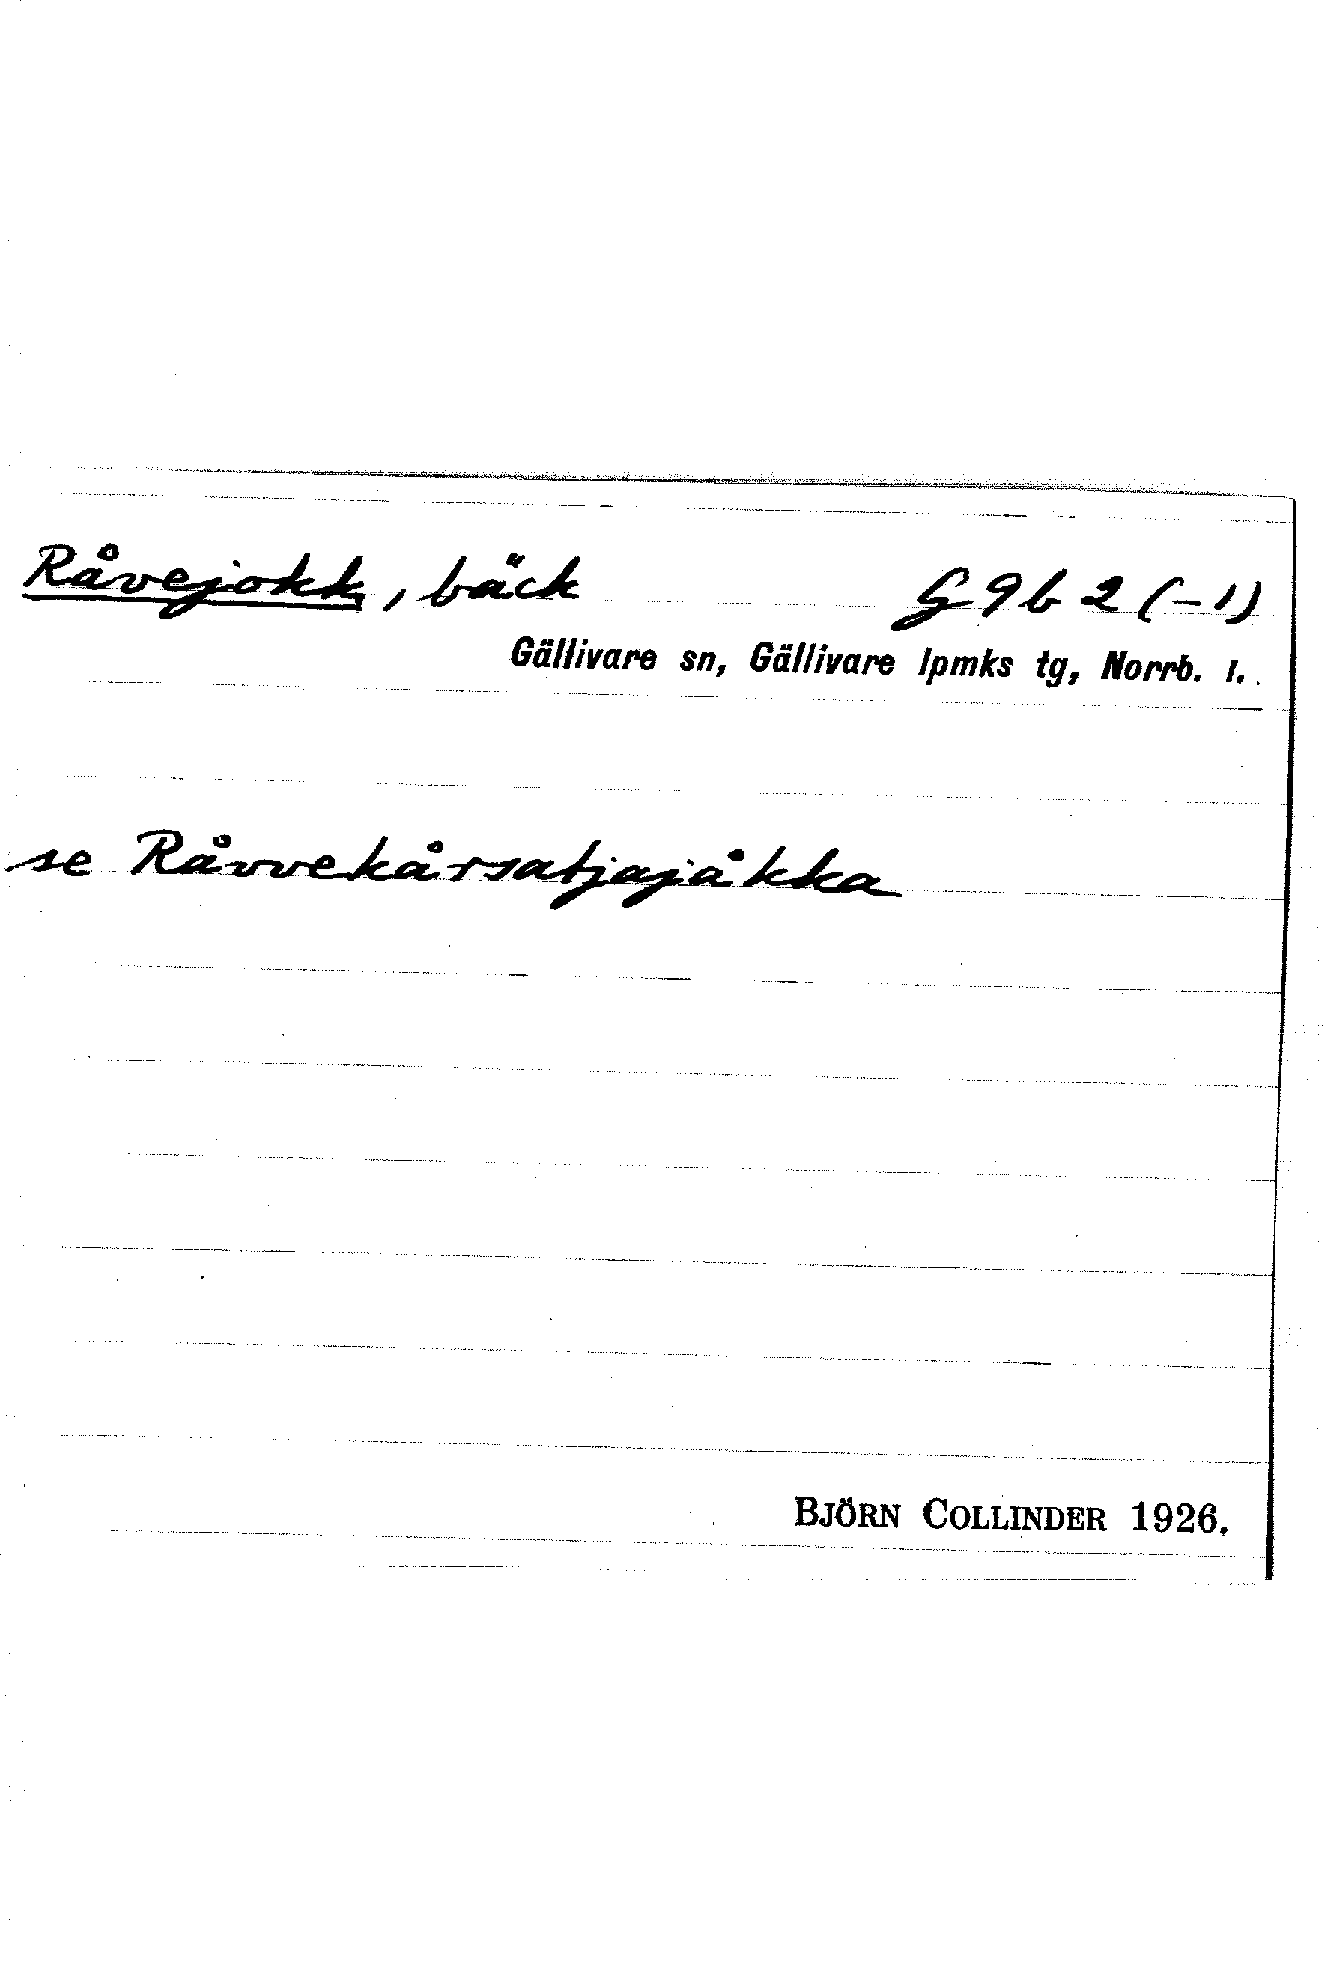 Råvejokk, bäck G 9 b 2 (-1)
Gällivare sn, Gällivare lpmks tg, Norrb. l.
se Råvvekårsatjajåkka
BJÖRN COLLINDER 1926.